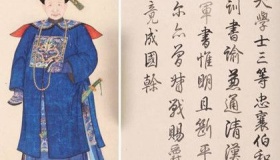 大學士三等忠襄伯
訓書諭兼通清漢
軍書惟明且斷平
尔亦曾督戰賜
竟成國幹